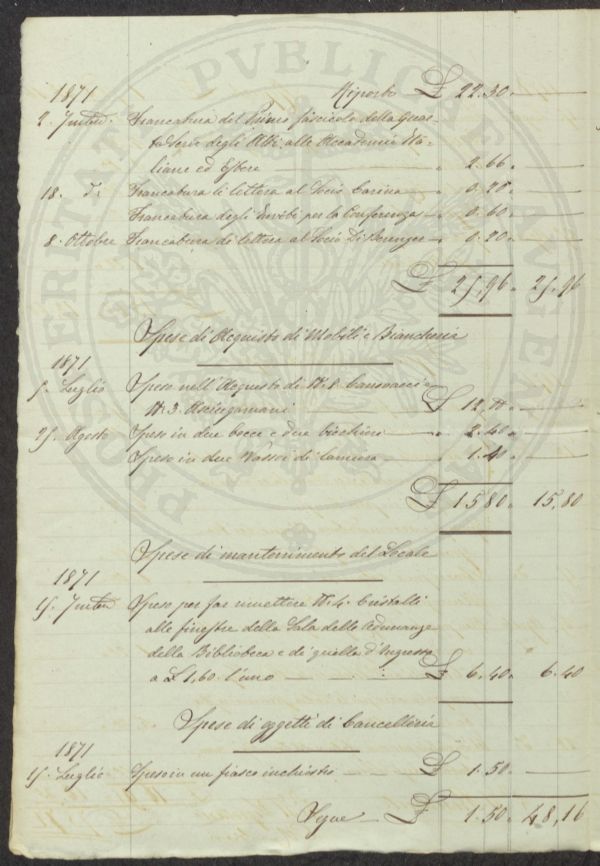 1871
Riporto £ 22.30.
2. Francatura del Primo fascicolo della Quar-
ta Serie degli Atti alle Accademie Ita-
liane ed Estere 2.66.
18. Francatura di lettera al Socio 0.20.
Francatura degli Inviti per la Conferenza 0.60.
8. Ottobre Francatura di lettera al Socio 0.20.
£ 25,96. 25,96
Spese di Acquisto di Mobili e Biancheria
1871
5. Luglio Speso nell'Acquisto di N. 8 Canovacci e
N. 3. Asciugamani £ 12,00.
25. Agosto Speso in due bocce e due bicchieri 2.40.
Speso in due Vassoi di lamiera 1.40.
£ 15.80. 15,80
Spese di mantenimento del Locale
1871
15. Speso per far rimettere N. 4. Cristalli
alle finestre della Sala delle Adunanze
della Biblioteca e di quella d'Ingresso
a £ 1,60. l'uno £ 6.40. 6.40
Spese di oggetti di Cancelleria
1871
15. Luglio Speso in un fiasco inchiostro £ 1.50.
Segue £ 1.50. 48,16
PROSPERITATI PVBLICAE AVGENDAE